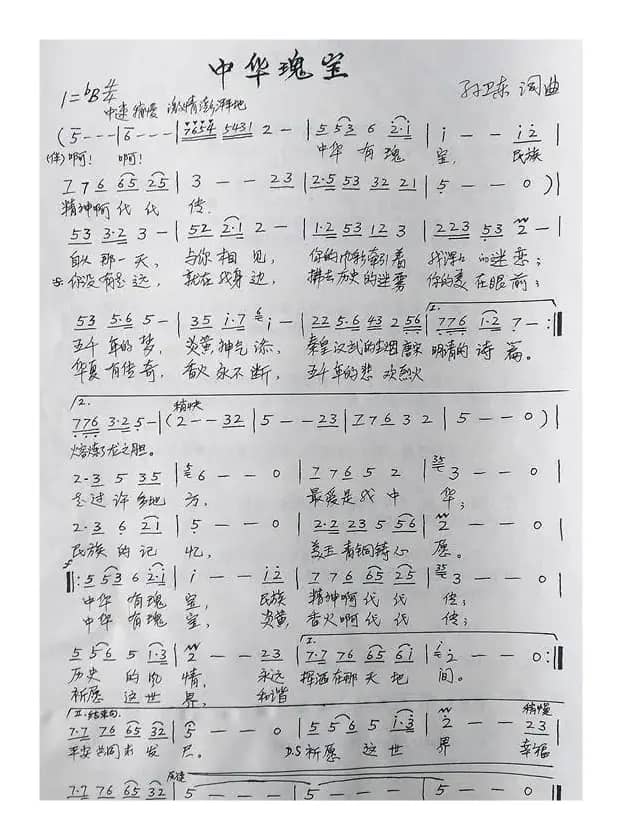 中华瑰宝
1=ᵇB 4/4
孙卫东 词曲
中速稍慢 激情澎湃地
( 5 - - - | 6 - - - | 7654 5431 2 - | 5 53 6 2·1 | i - - i2 |
(伴)啊! 啊! 中华有瑰宝, 民族
7 7 6 65 25 | 3 - - 23 | 2·5 53 32 21 | 5 - - 0 ) |
精神啊代代传.
53 3·2 3 - | 52 2·1 2 - | 1·2 53 12 3 | 223 53 2 - |
自从那一天, 与你相见, 你的 牵引着 我 的迷恋;
你没有走远, 就在我身边, 拂去历史的迷雾 你的美在眼前;
53 5·6 5 - | 35 i·7 i - | 22 5·6 43 2 56 | 1. 776 1·2 7 - :||
五千年的梦, 炎黄神气添, 秦皇汉武的 明清的诗篇。
华夏有传奇, 香火永不断, 五千年的悲欢烈火
2. 稍快
776 3·2 5 - | (2 - - 32 | 5 - - 23 | 7 7 6 3 2 | 5 - - 0 ) |
熔炼了龙之胆。
2·3 5 35 | 6 - - 0 | 7 7 6 5 2 | 3 - - 0 |
走过许多地方, 最爱是我中华;
2·3 6 21 | 5 - - 0 | 2·2 23 5 56 | 2 - - 0 |
民族的记忆, 美玉青铜铸心愿。
f ||: 5 53 6 2·1 | i - - i2 | 7 7 6 65 25 | 3 - - 0 |
中华有瑰宝, 民族精神啊代代传;
中华有瑰宝, 炎黄香火啊代代传;
5 56 5 1·3 | 2 - - 23 | 1. 7·7 76 65 61 | 2 - - 0 :||
历史的风情, 永远挥洒在那天地间。
祈愿这世界, 和谐
II.结束句. 稍慢
7·7 76 65 32 | 5 - - 0 | 5 56 5 i·3 | 2 - - 23 |
平安共同来发展。 D.S 祈愿这世界 幸福
7·7 76 65 32 | 5 - - - | 5 - - - | 5 - - 0 ||